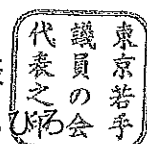 東京若手
議員の会
代表之印
ひろ